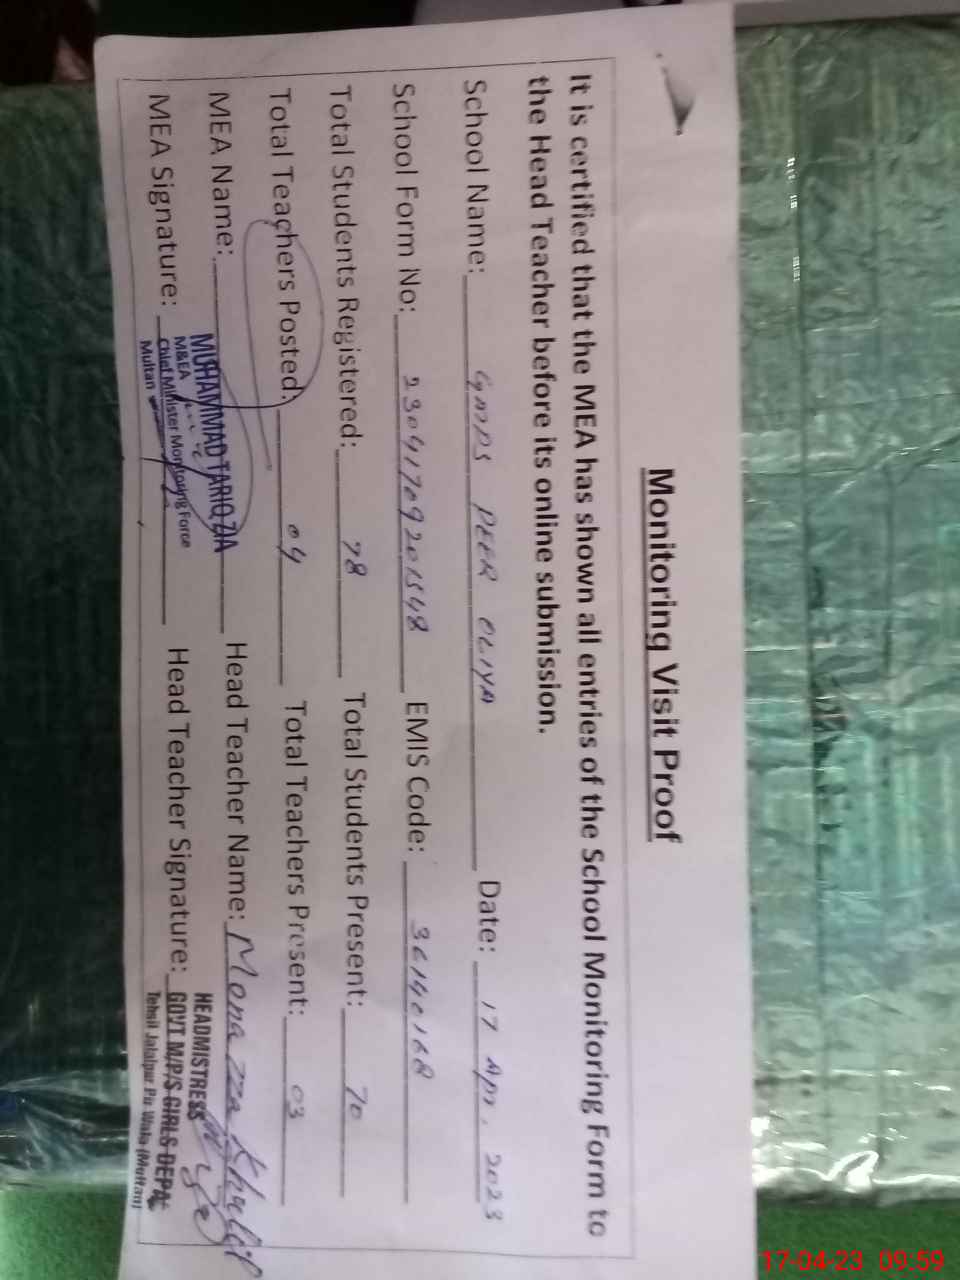 Monitoring Visit Proof
It is certified that the MEA has shown all entries of the School Monitoring Form to
the Head Teacher before its online submission.
School Name: GMPS PEER OLIYA Date: 17 Apr. 2023
School Form No: 23041709201548 EMIS Code: 36140168
Total Students Registered: 78 Total Students Present: 70
Total Teachers Posted: 04 Total Teachers Present: 03
MEA Name: MUHAMMAD TARIQ ZIA Head Teacher Name: Monazza Khalil
M&EA
Chief Minister Monitoring Force
Multan
MEA Signature: Head Teacher Signature:
HEADMISTRESS
GOVT M/P/S GIRLS
Tehsil Jalalpur Pir Wala (Multan)
17-04-23 09:59